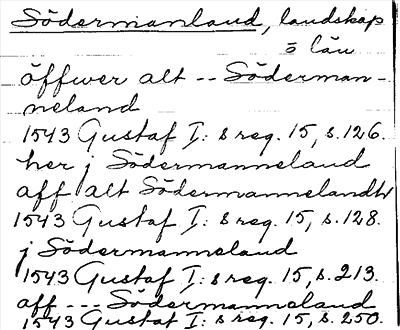 Södermanland, landskap
o län
öffwer alt -- Söderman-
neland
1543 Gustaf I: s reg. 15, s. 126.
her j Södermanneland
aff alt Södermannelandh
1543 Gustaf I: s reg. 15, s. 128.
j Södermanneland
1543 Gustaf I: s reg. 15, s. 213.
aff --- Södermanneland
1543 Gustaf I: s reg. 15, s. 250.